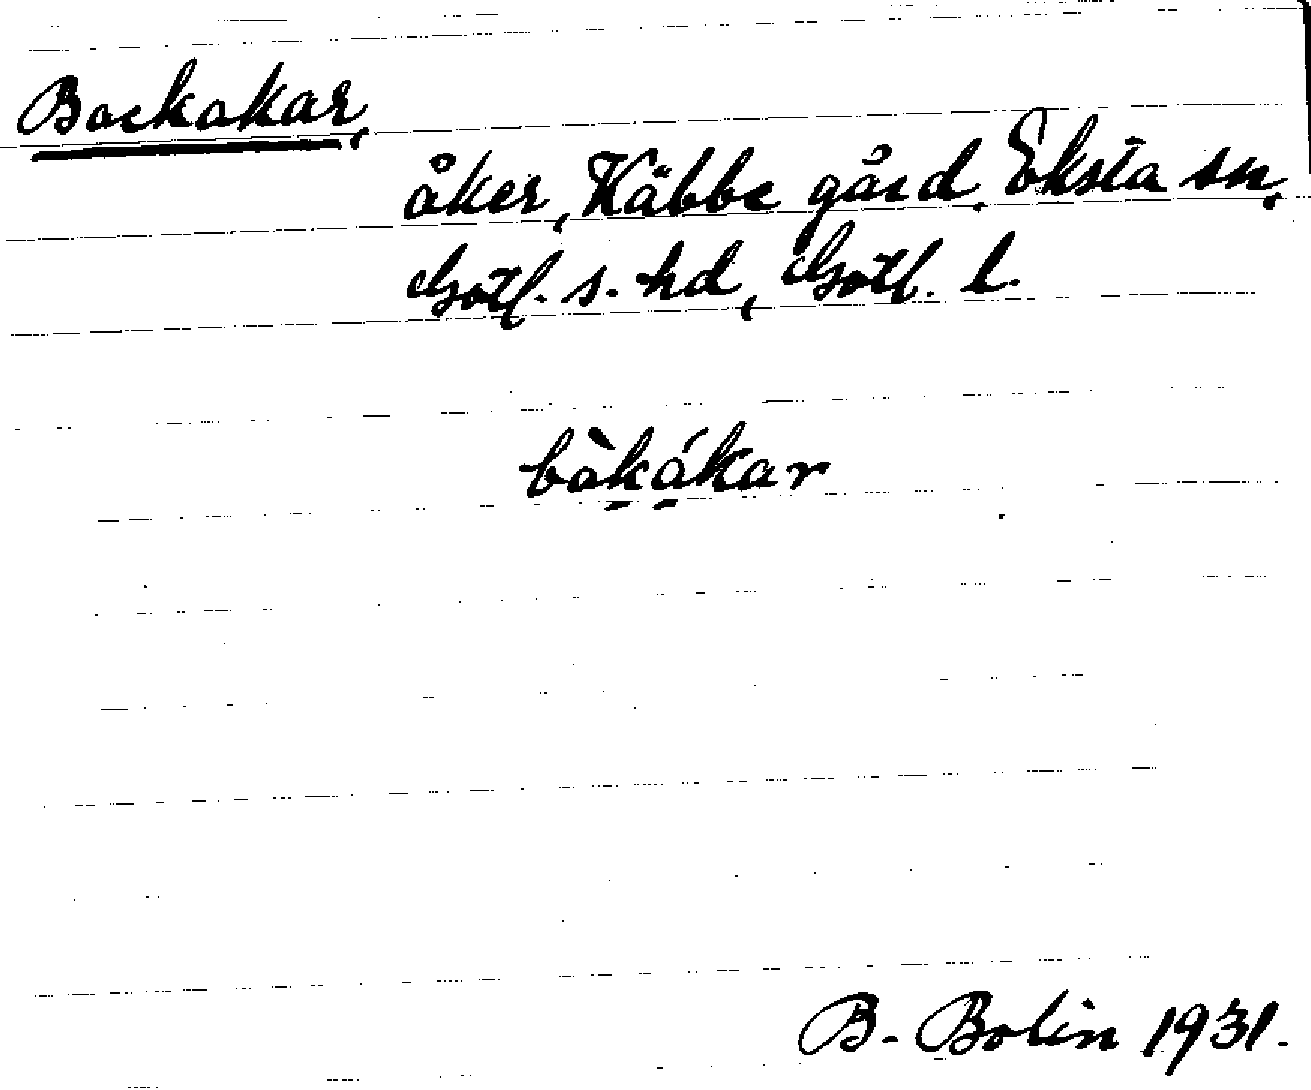 Bockakar,
åker, Käbbe gård, Eksta sn,
Gotl. s. hd, Gotl. l.
bòkákar
B. Bolin 1931.